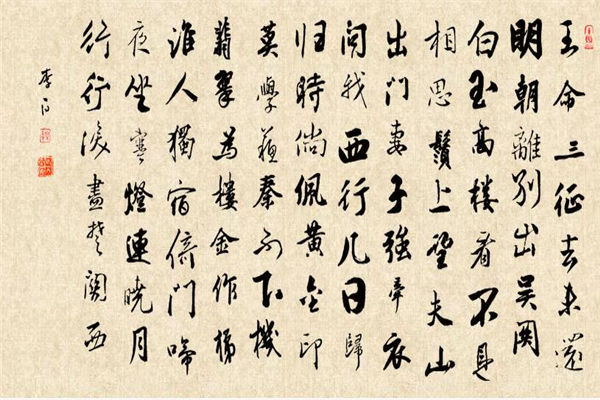 王命三征去未還
明朝離别出吴関
白玉高楼看不見
相思鬚上望夫山
出門妻子強牽衣
问我西行几日歸
归時倘佩黄金印
莫學蘓秦不下機
翡翠為樓金作梯
誰人獨宿倚門啼
夜坐寒燈連曉月
行行淚盡楚関西
李白